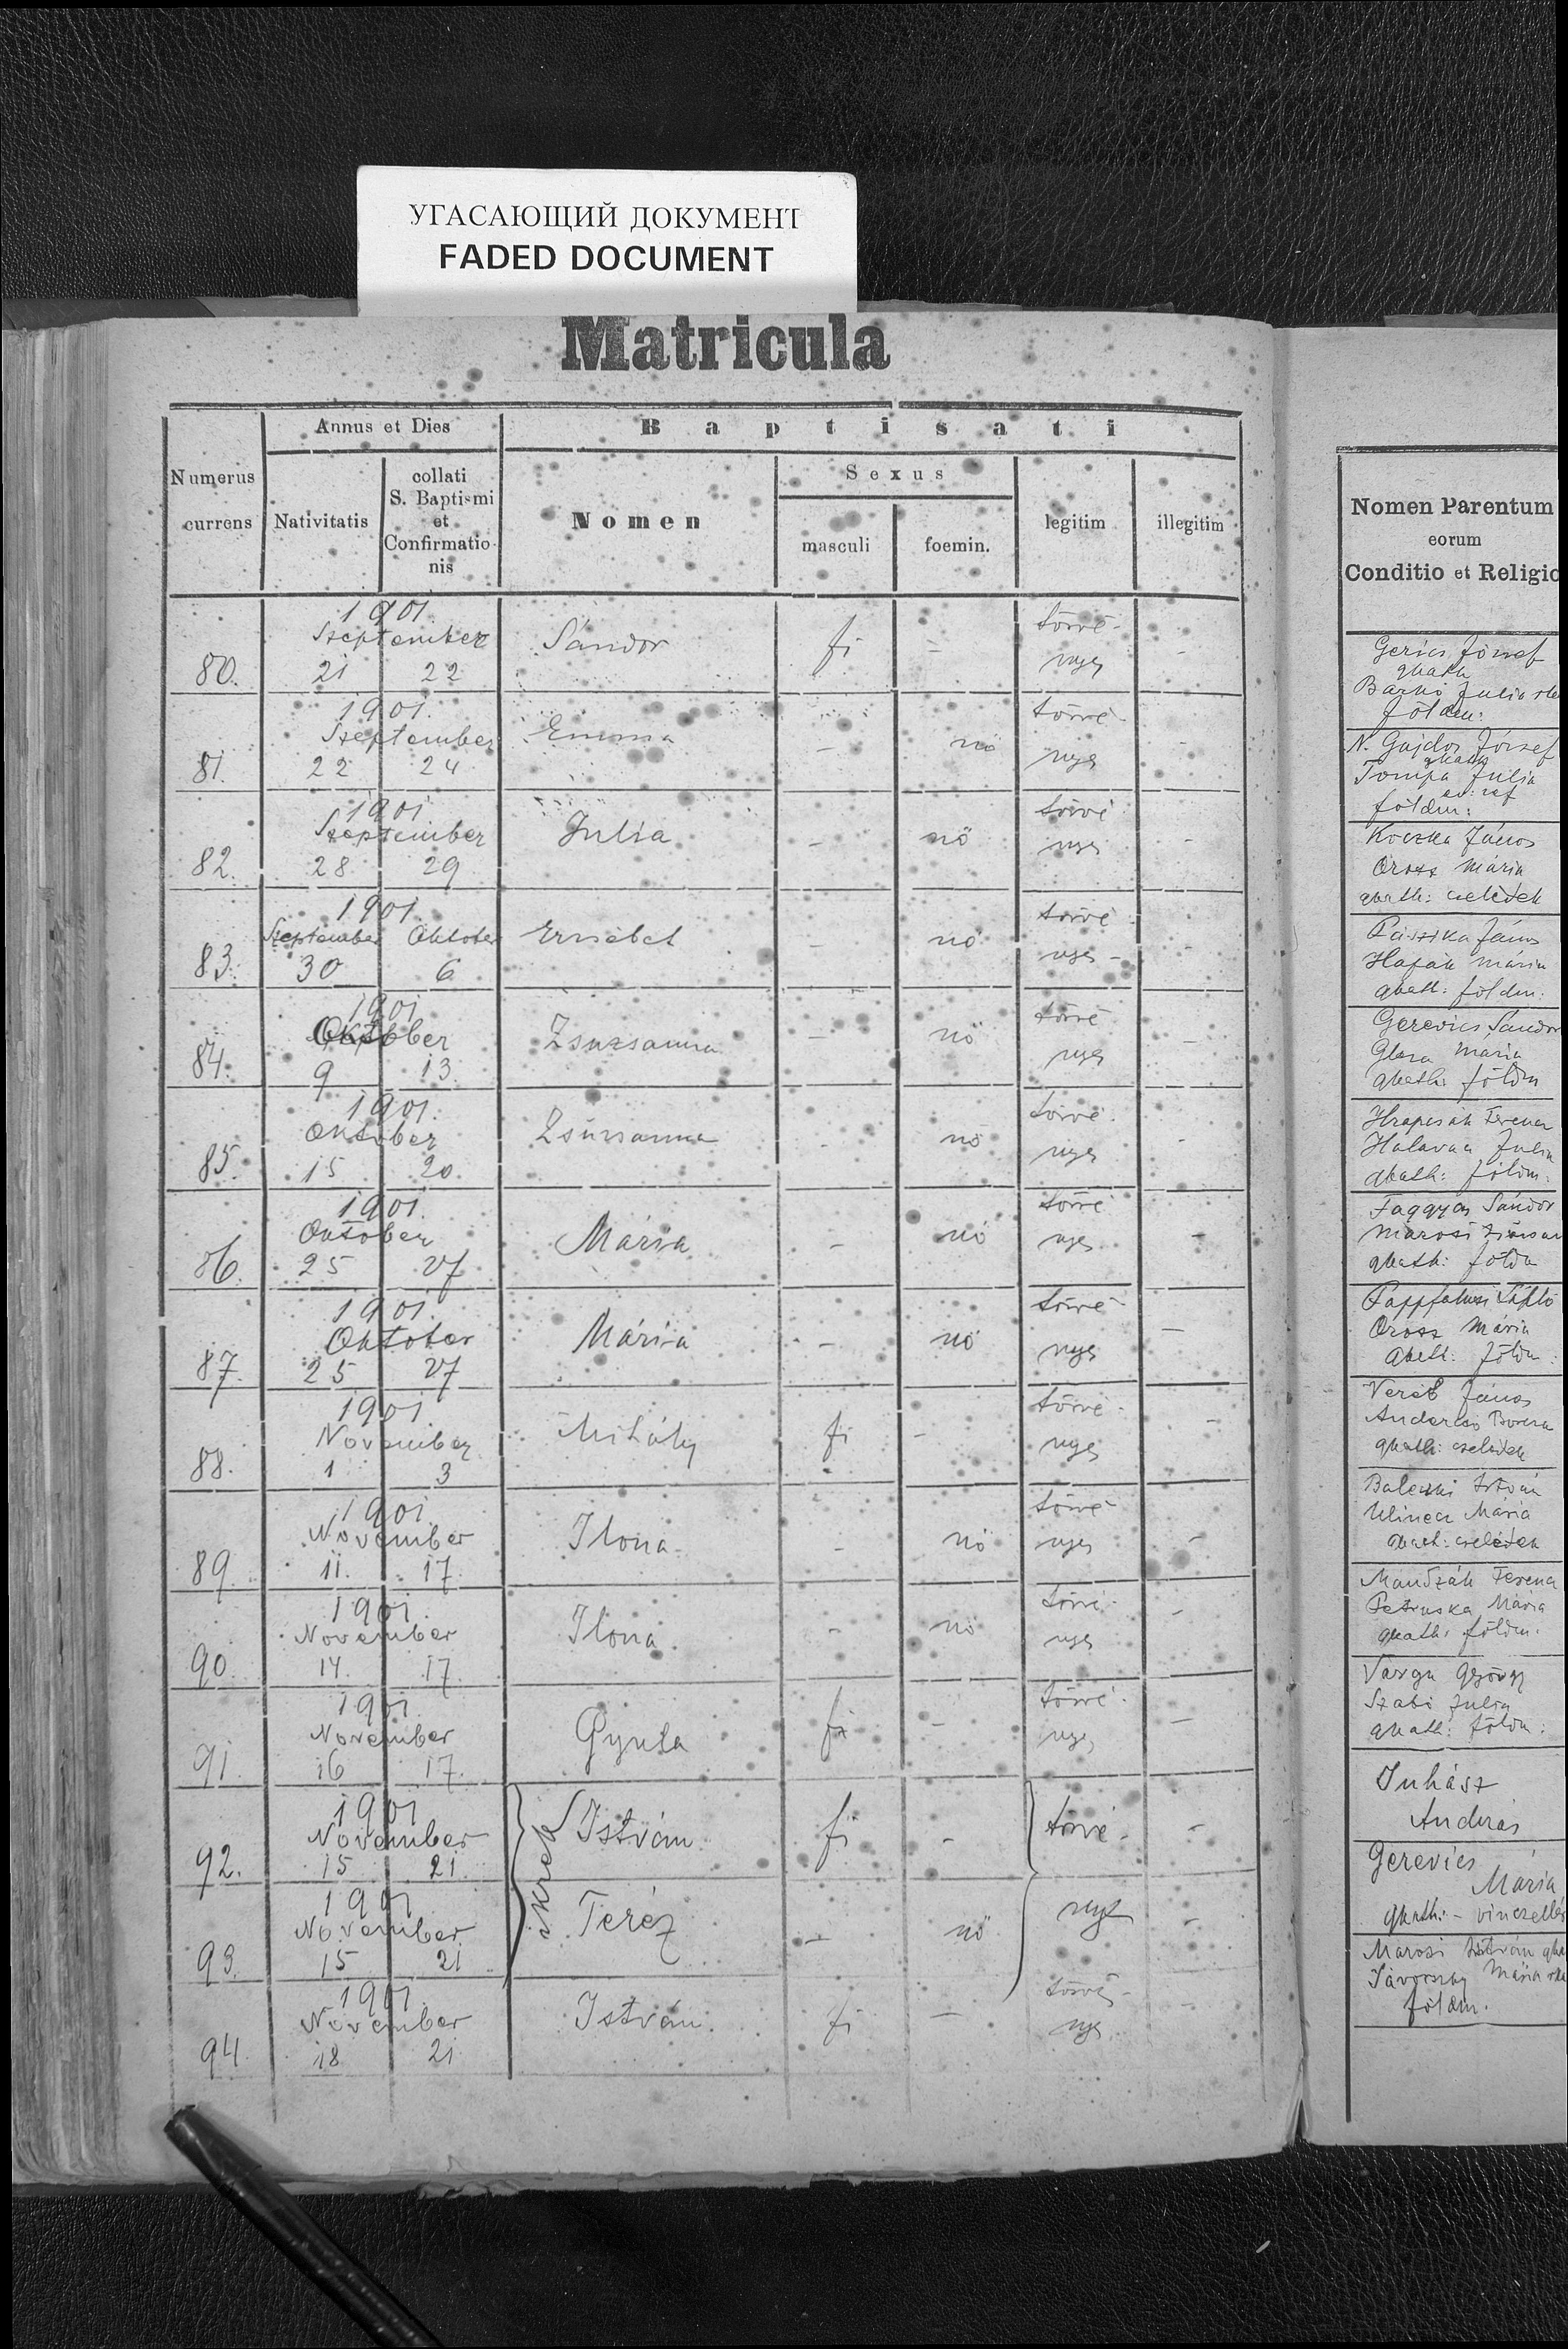 УГАСАЮЩИЙ ДОКУМЕНТ
FADED DOCUMENT
Matricula
Numerus
currens
Annus et Dies
Nativitatis
collati
S. Baptismi
et
Confirmatio
nis
Baptisati
Nomen
Sexus
masculi
foemin.
legitim
illegitim
Nomen Parentum
eorum
Conditio et Religio
80. 1901. September 21 22 Sándor fi - törvé- nyes -
Gerics József
gkath
Julia
földm:
81. 1901. September 22 24 Emma - nö törvé- nyes -
N. Gajdos József
gkath
Tompa Julia
ev: ref
földm:
82. 1901 September 28 29 Julia - nö törvé nyes -
Koczka János
Orosz Mária
gkath: cselédek
83. 1901. September 30 Oktober 6 Ersébet - nö törvé nyes -
János
Mária
gkath: földm:
84. 1901 Oktober 9 13 Zsuzsanna - nö törvé nyes -
Gerevics Sándor
Mária
gkath: földm
85. 1901. Oktober 15 20 Zsuzsanna - nö törvé- nyes -
Hrapcsák Ferencz
Julia
gkath: földm.
86. 1901. Oktober 25 27 Mária - nö törvé nyes -
Faggyas Sándor
Marosi
gkath: földm
87. 1901. Oktober 25 27 Mária - nö törvé- nyes -
Orosz Mária
gkath: földm:
88. 1901. November 1 3 Mihály fi - törvé- nyes -
Veréb János
gkath: cselédek
89. 1901. November 11. 17 Ilona - nö törvé- nyes -
István
Mária
gkath: cselédek
90. 1901. November 14. 17. Ilona - nö törvé- nyes -
Ferencz
Petruska Mária
gkath: földm.
91. 1901 November 16 17. Gyula fi - törvé- nyes -
Varga György
Szabó Julia
gkath: földm:
92. 1901 November 15 21. ikrek István fi - törvé- -
Juhász
András
93. 1901 November 15 21 Teréz - nö nyes -
Gerevics
Mária
gkath: - vinczellér
94. 1901 November 18 21 István. fi - törvé- nyes -
Marosi István
Mária
földm.